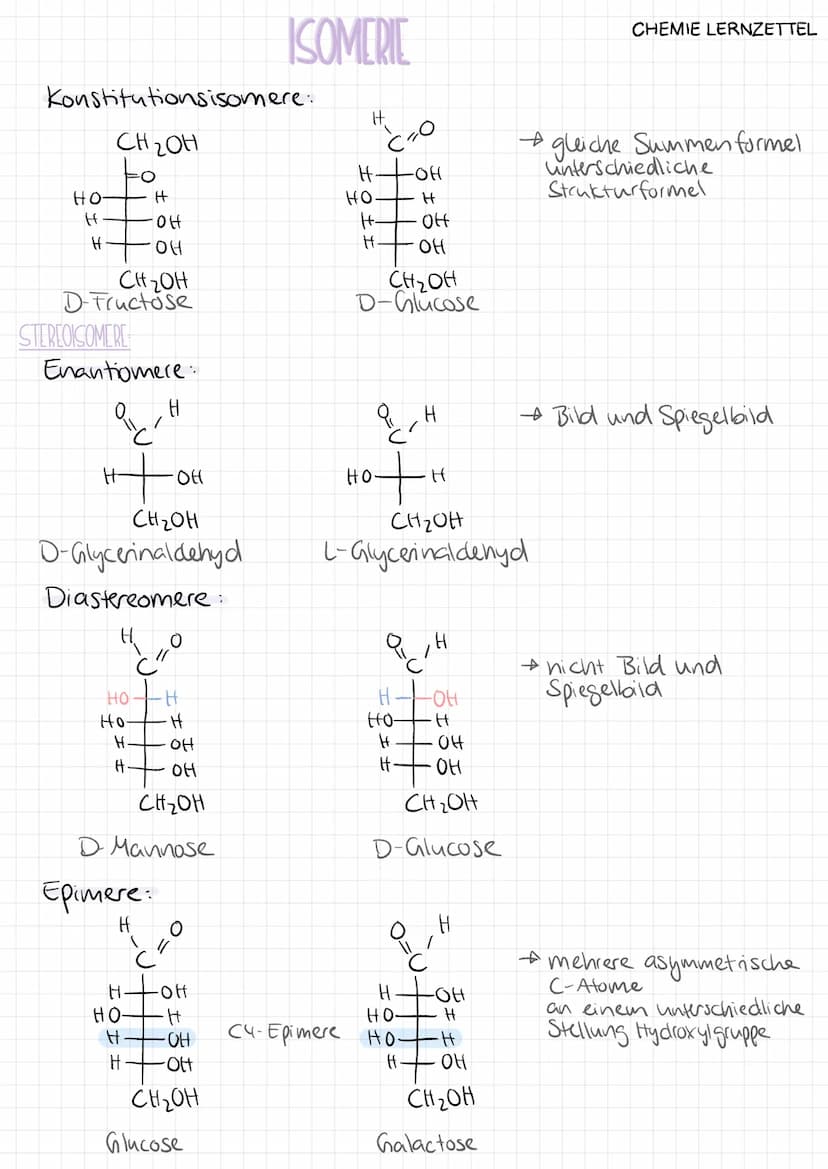 ISOMERIE
CHEMIE LERNZETTEL
Konstitutionsisomere:
CH2OH
=O
HO H
H OH
H OH
CH2OH
D-Fructose
H O
C
H OH
HO H
H OH
H OH
CH2OH
D-Glucose
→ gleiche Summenformel
unterschiedliche
Strukturformel
STEREOISOMERE:
Enantiomere:
O H
C
H OH
CH2OH
D-Glycerinaldehyd
O H
C
HO H
CH2OH
L-Glycerinaldehyd
→ Bild und Spiegelbild
Diastereomere:
H O
C
HO H
HO H
H OH
H OH
CH2OH
D-Mannose
O H
C
H OH
HO H
H OH
H OH
CH2OH
D-Glucose
→ nicht Bild und
Spiegelbild
Epimere:
H O
C
H OH
HO H
H OH
H OH
CH2OH
Glucose
C4-Epimere
O H
C
H OH
HO H
HO H
H OH
CH2OH
Galactose
→ mehrere asymmetrische
C-Atome
an einem unterschiedliche
Stellung Hydroxylgruppe